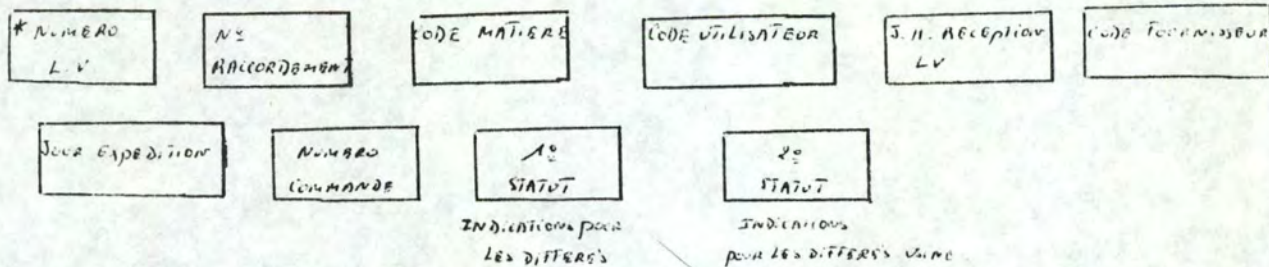 * NUMERO
L.V
Nº
RACCORDEMENT
CODE MATIERE
CODE UTILISATEUR
J. H. RECEPTION
LV
CODE FOURNISSEUR
JOUR EXPEDITION
NUMERO
COMMANDE
1º
STATUT
2º
STATUT
INDICATIONS POUR
LES DIFFERES
INDICATIONS
POUR LES DIFFERES USINE